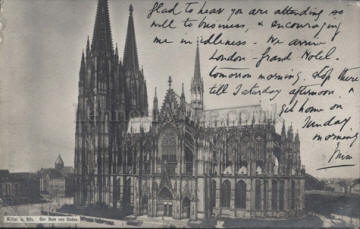 Glad to hear you are attending so
well to business, & encouraging
me in idleness. We arrive
London - Grand Hotel -
tomorrow morning. Stop there
till Saturday afternoon &
get home on
Sunday
morning
Cöln a. Rh. Der Dom von Süden